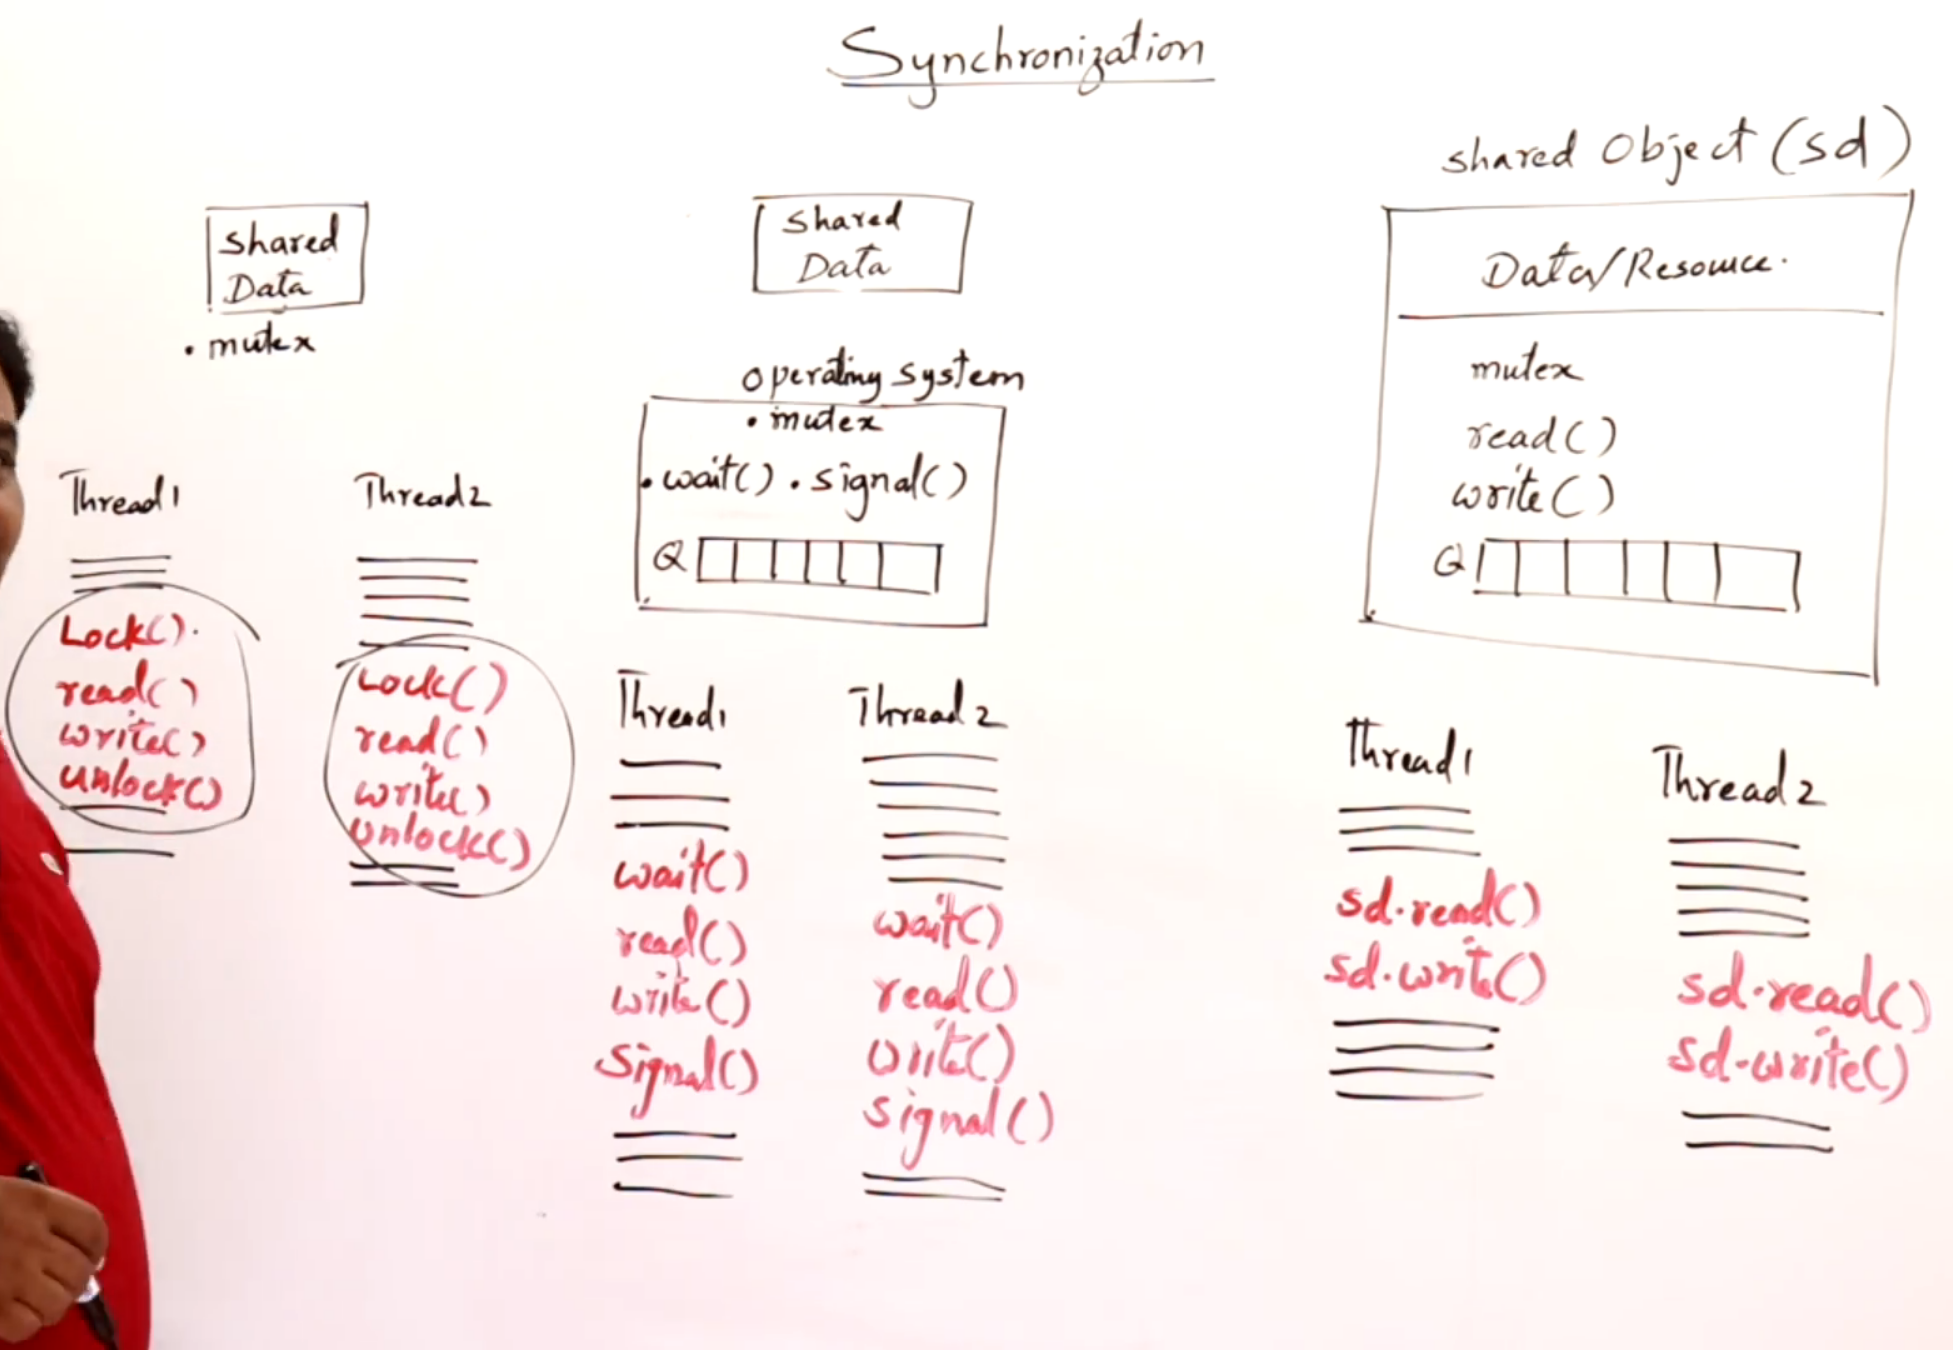 Synchronization
Shared
Data
. mutex
Thread1
Lock().
read()
write()
unlock()
Thread2
Lock()
read()
write()
Unlock()
Shared
Data
Operating System
. mutex
. wait() . signal()
Q
Thread1
wait()
read()
write()
Signal()
Thread2
wait()
read()
write()
signal()
Shared Object (sd)
Data/Resource.
mutex
read()
write()
Q
Thread1
sd.read()
sd.write()
Thread2
sd.read()
sd.write()